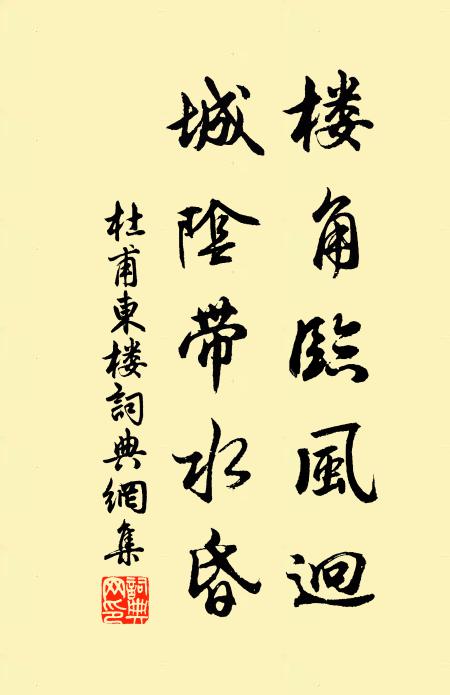 楼角臨風迥
城陰帶水昏
杜甫東楼詞典網集
詞典
网印